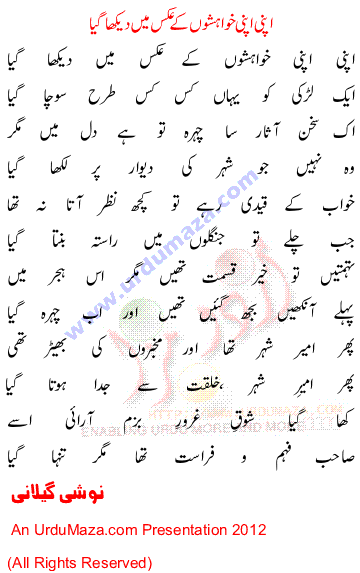 اپنی اپنی خواہشوں کے عکس میں دیکھا گیا
اپنی اپنی خواہشوں کے عکس میں دیکھا گیا
ایک لڑکی کو یہاں کس کس طرح سوچا گیا
اک سخن آثار سا چہرہ تو ہے دل میں مگر
وہ نہیں جو شہر کی دیوار پر لکھا گیا
خواب کے قیدی رہے تو کچھ نظر آتا نہ تھا
جب چلے تو جنگلوں میں راستہ بنتا گیا
تہمتیں تو خیر قسمت تھیں مگر اس ہجر میں
پہلے آنکھیں بجھ گئیں تھیں اور اب چہرہ گیا
پھر امیر شہر تھا اور مخبروں کی بھیڑ تھی
پھر امیر شہر ،خلقت سے جدا ہوتا گیا
کھا گیا شوقِ غرورِ بزم آرائی اسے
صاحب فہم و فراست تھا مگر تنہا گیا
نوشی گیلانی
An UrduMaza.com Presentation 2012
(All Rights Reserved)
www.urdumaza.com